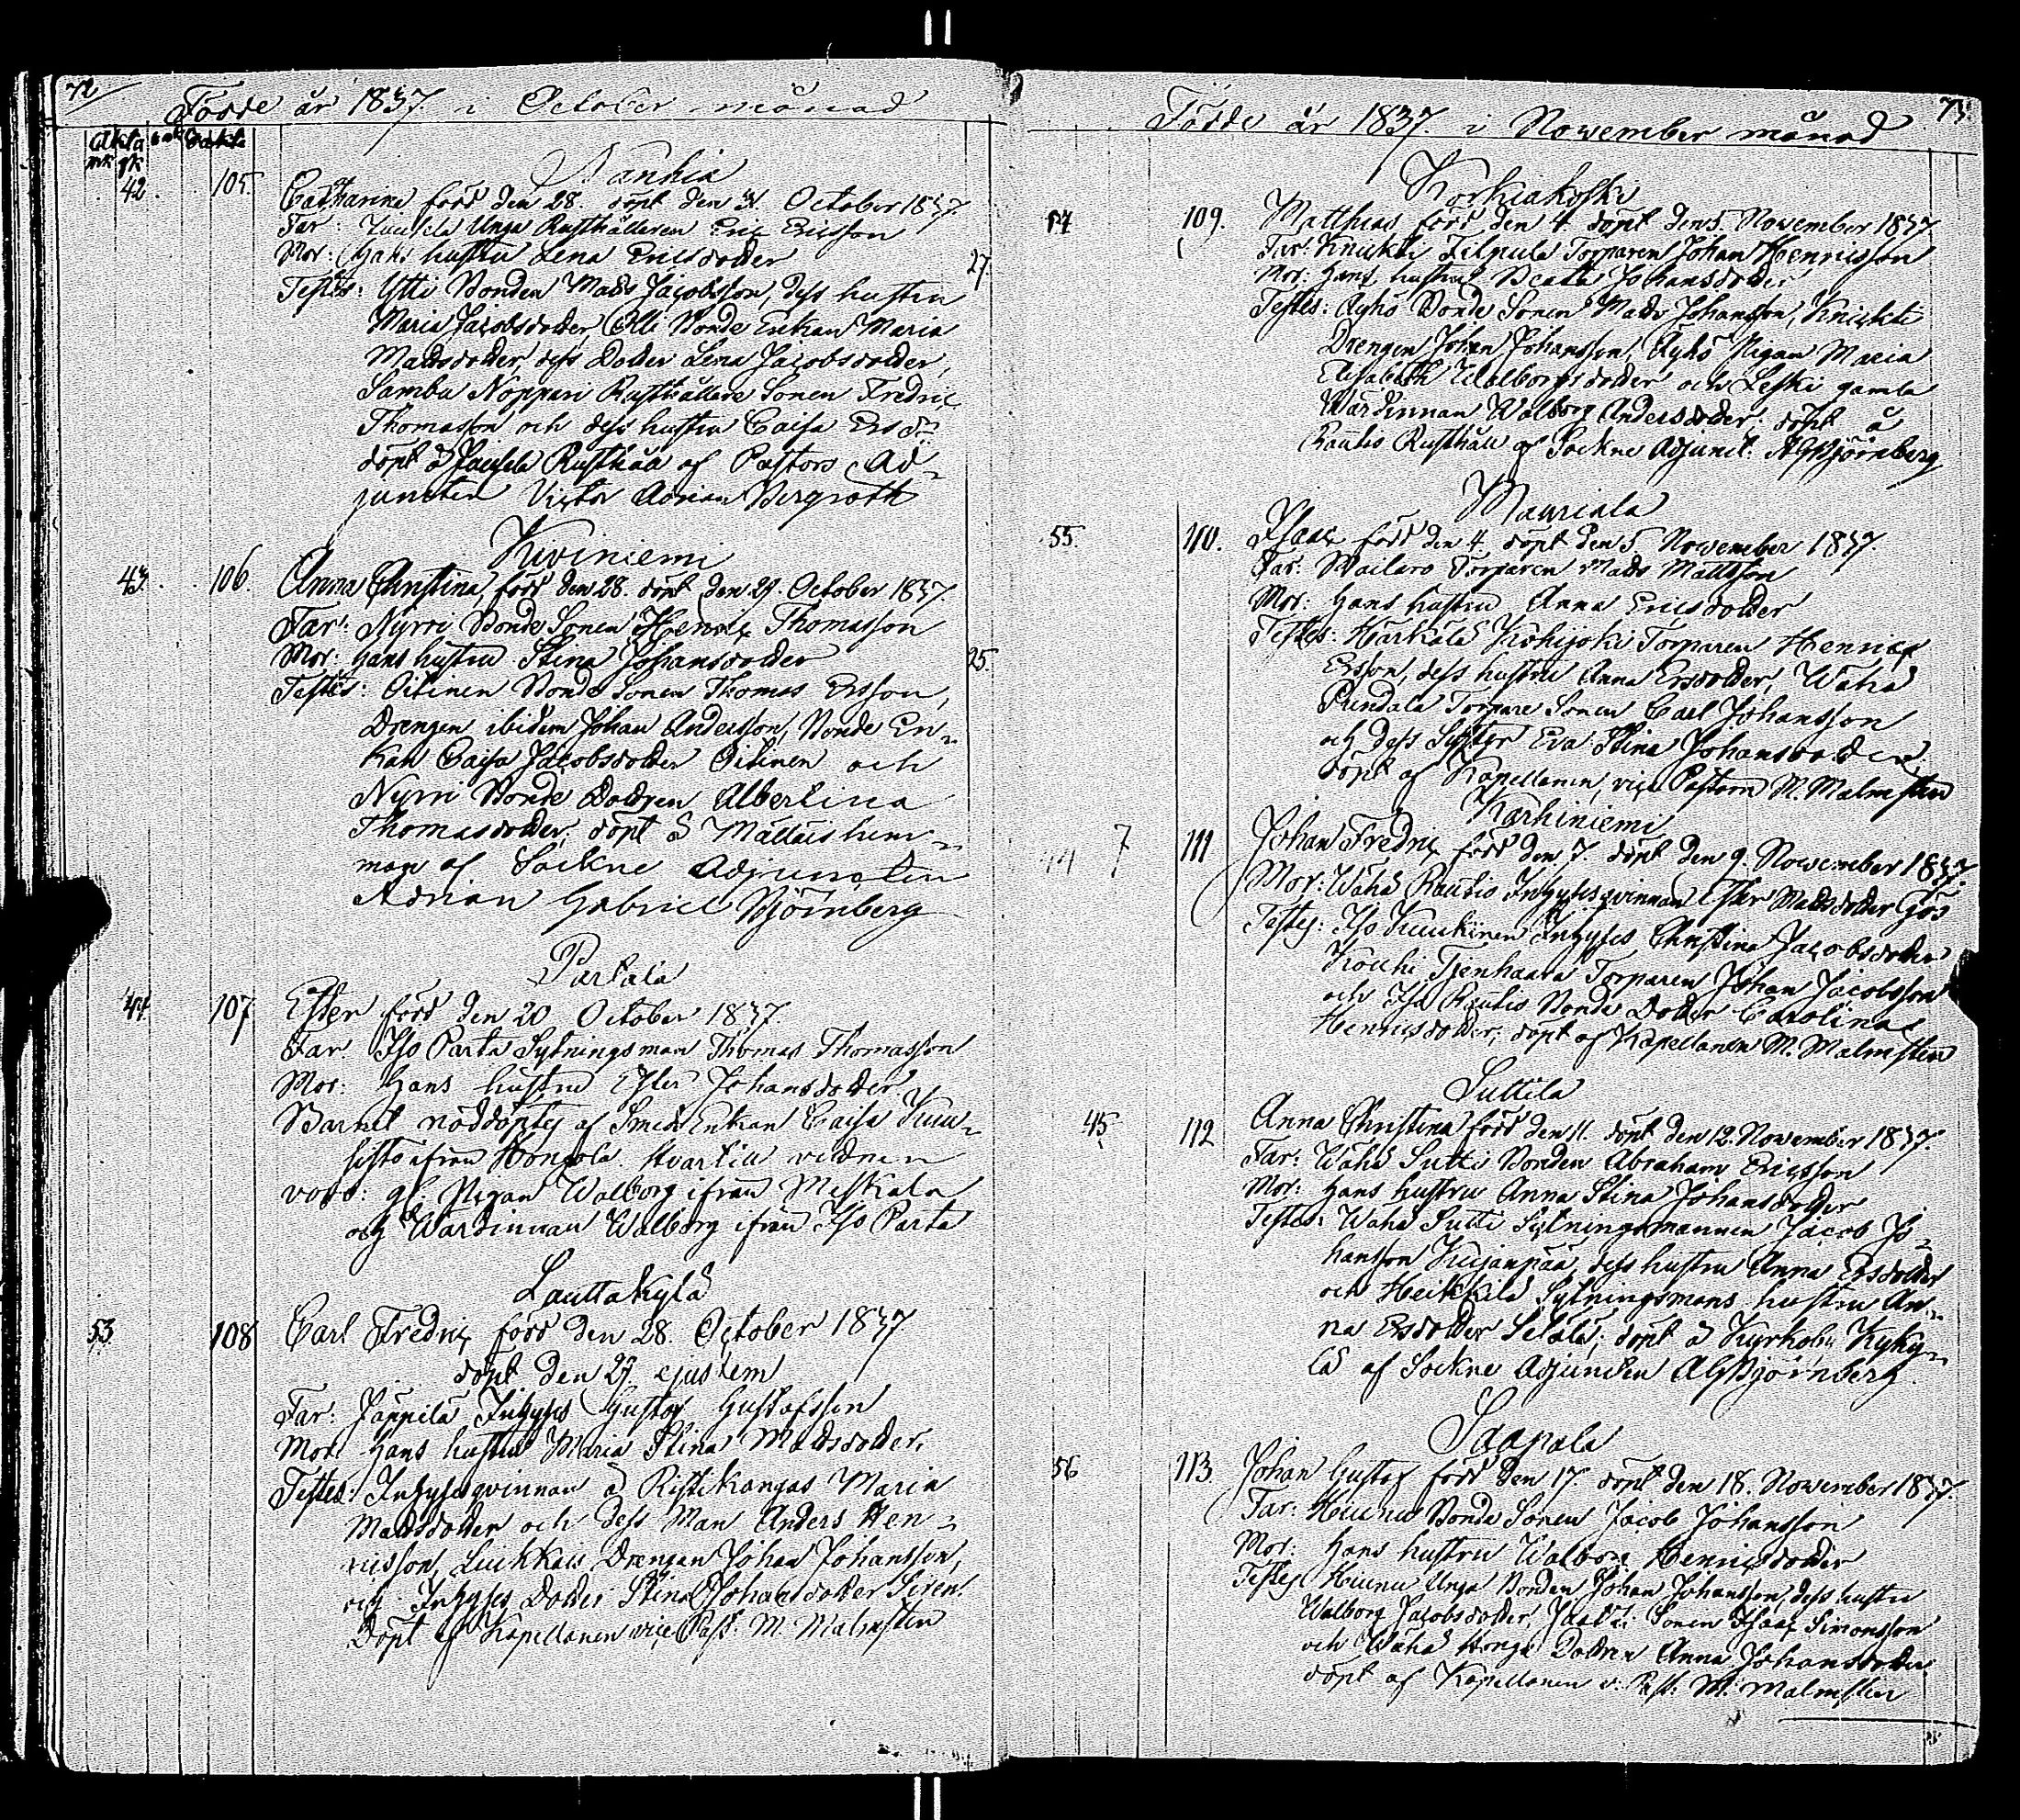 72
Födde år 1837. i October månad
Äkta oäkta
mk qk
Nanhia
42. 105. Catharina född den 28. döpt den 31. October 1837.
Far: Unga Rusthållaren Eric Ericsson
Mor: Hans hustru Lena Ericsdotter
27
Testes: Ytti Bonden Mads Jacobsson, dess hustru
Maria Jacobsdotter, Olli Bonde Enkan Maria
Madsdotter, dess Dotter Lena Jacobsdotter,
Sambu Noppari Rusthållare Sonen Fredric
Thomasson och dess hustru Caisa Ersdr
döpt å Rusthåll af Pastors Ad-
juncten Victor Adrian Bergroth
Kiviniemi
43. 106. Anna Christina, född den 28. döpt den 29. October 1837
Far: Nyrri Bonde Sonen Henric Thomasson
Mor: Hans hustru Stina Johansdotter
25.
Testes: Oitinen Bonde Sonen Thomas Ersson,
Drengen ibidem Johan Andersson, Bonde En-
kan Caisa Jacobsdotter Oitinen och
Nyrri Bonde Dottren Albertina
Thomasdotter; döpt å hem-
man af Sockne Adjuncten
Adrian Gabriel Björnberg
Partala
44. 107 Ester född den 20 October 1837.
Far: Iso Parta Sytningsman Thomas Thomasson
Mor: Hans hustru Ester Johansdotter
Barnet nöddöptes af Smeds Enkan Caisa Kuu-
sisto ifrån Hongola. Hvartill vittnen
voro: gl: Pigan Walborg ifrån Meskala
och Wärdinnan Walborg ifrån Iso Parta
Lauttakylä
53. 108 Carl Fredric född den 28. October 1837
döpt den 29. ejusdem
Far: Jäppilä Inhyses Gustaf Gustafsson
Mor: Hans hustru Maria Stina Madsdotter.
Testes: Inhysesqvinnan å Ristikangas Maria
Madsdotter och dess Man Anders Hen-
ricsson, Luikkais Drengen Johan Johansson,
och Inhyses Dotter Stina Johansdotter Siren.
Döpt af Kapellanen vice Past. M. Malmsten
73.
Födde år 1837. i November månad
Korkiakoski
54 109. Matthias född den 4. döpt den 5. November 1837
Far: Knickti Filpula Torparen Johan Henricsson
Mor: Hans hustru Beata Johansdotter
Testes: Äyhö Bonde Sonen Mads Johansson, Knickti
Drengen Johan Johansson, Äyhö Pigan Maria
Elisabeth Walborgsdotter och Leski gamla
Wärdinnan Walborg Andersdotter; döpt å
Rautio Rusthåll af Sockne Adjunct: AGBjörnberg
Mauriala
55. 110. Isaac född den 4. döpt den 5. November 1837.
Far: Torparen Mads Mattsson
Mor: Hans hustru Anna Ericsdotter
Testes: Härkälä Torparen Henric
Ersson, dess hustru Anna Ersdotter, Wähä
Pundala Torpare Sonen Carl Johansson
och dess Syster Eva Stina Johansdotter
döpt af Kapellanen, vice Pastorn M. Malmsten
Karhiniemi
44 7 111 Johan Fredric född den 7. döpt den 9. November 1837.
Mor: Wähä Rautio Inhysesqvinnan Ester Madsdotter Gös
Testes: Iso Kuukinen Inhyses Christina Jacobsdotter
Kouhi Tjenhaara Torparen Johan Jacobsson
och Iso Rautio Bonde Dotter Carolina
Henricsdotter; döpt af Kapellanen M. Malmsten
Suttila
45 112 Anna Christina född den 11. döpt den 12. November 1837.
Far: Wähä Sutti Bonden Abraham Ericsson
Mor: Hans hustru Anna Stina Johansdotter
Testes: Wähä Sutti Sytningsmannen Jacob Jo-
hansson Kujanpää, dess hustru Anna Ersdotter
och Heikkilä Sytningsmans hustru An-
na Ersdotter döpt å
lä af Sockne Adjuncten AGBjörnberg.
Sapala
56 113 Johan Gustaf född den 17. döpt den 18. November 1837.
Far: Hiunu Bonde Sonen Jacob Johansson
Mor: Hans hustru Walborg Henricsdotter
Testes Hiunu Unga Bonden Johan Johansson, dess hustru
Walborg Jacobsdotter, Sonen Isaac Simonsson
och Wähä Hongo Dottren Anna Johansdotter
döpt af Kapellanen v: Past: M: Malmsten